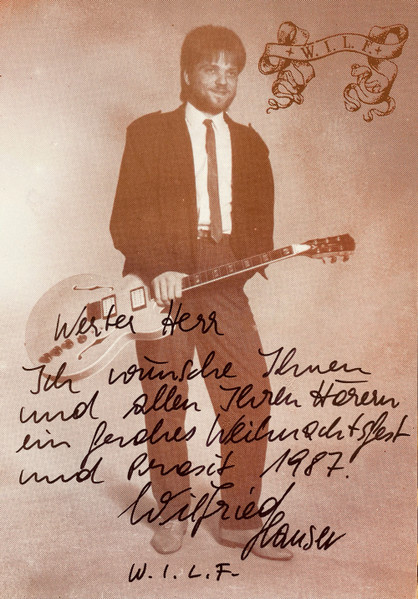 + W. I. L. F. +
Werter Herr
Ich wünsche Ihnen
und allen Ihren Hörern
ein frohes Weihnachtsfest
und Prosit 1987.
Wilfried
Hauser
W. I. L. F.